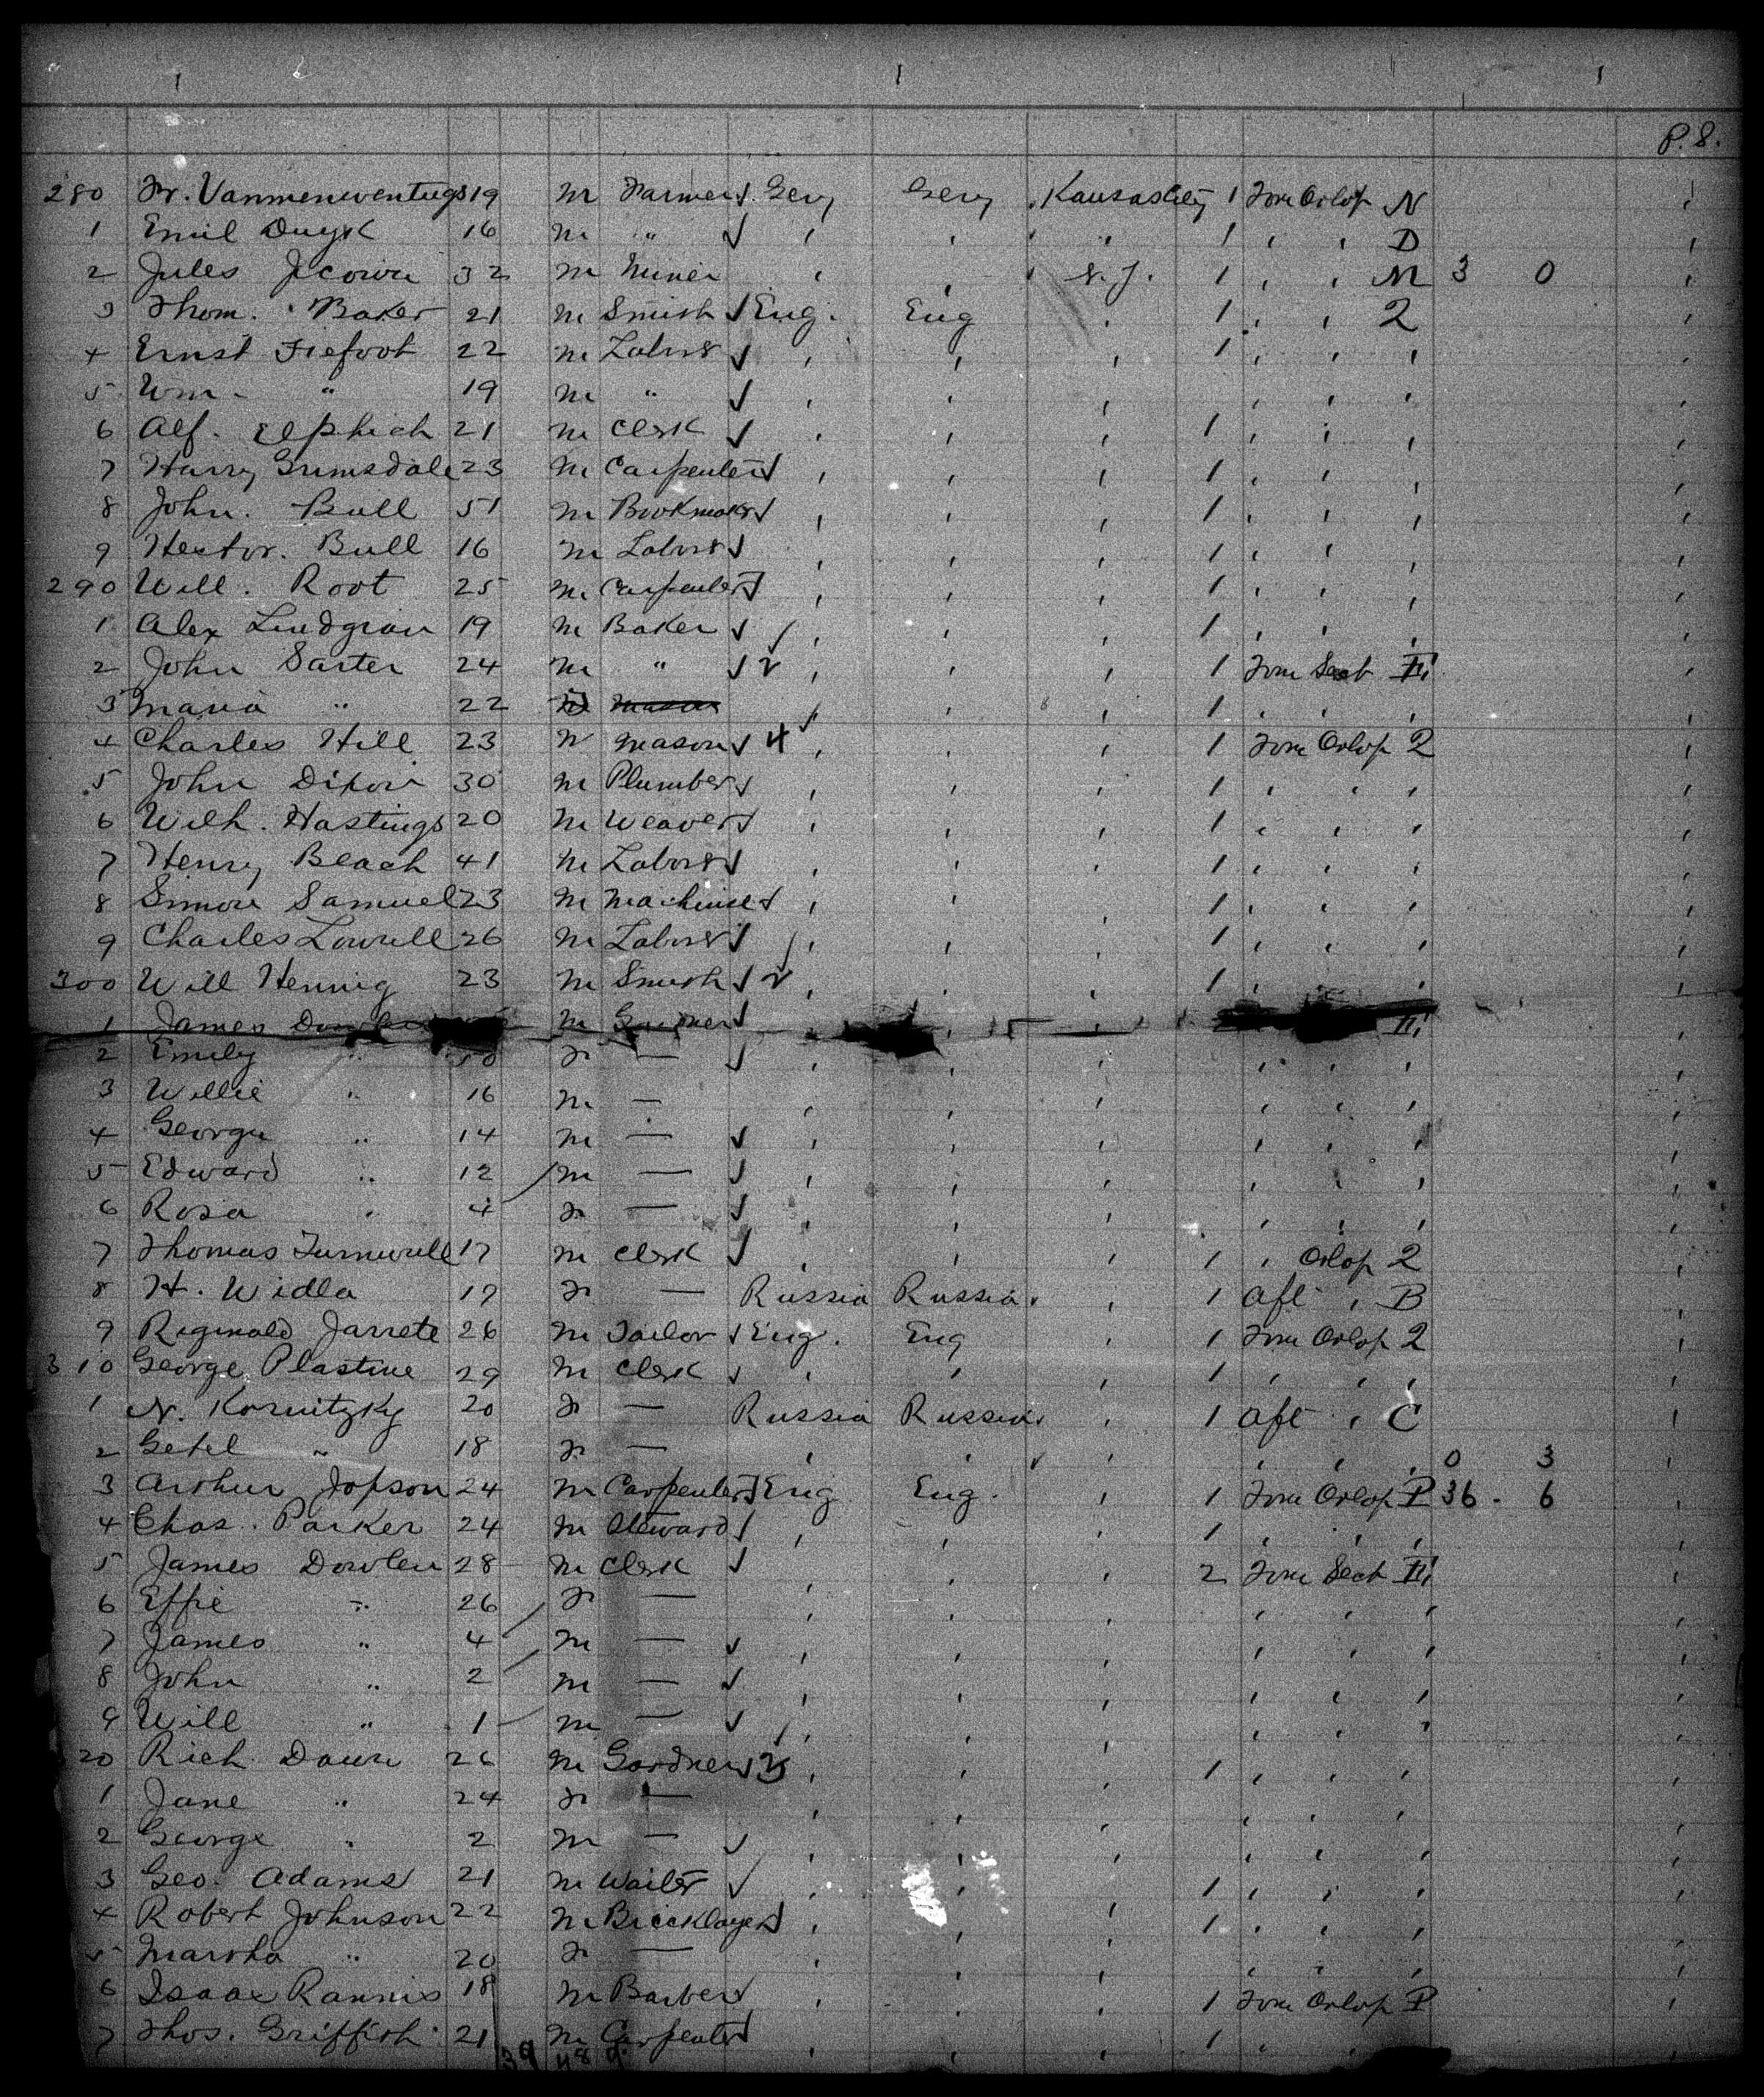 P. 8.
280 Fr. Vanmenwentugs 19 m Farmer Gery Gery Kansas City 1 Fore Orlop N
1 Emil Duyk 16 m " ' ' " 1 ' ' D
2 Jules 32 m Miner ' ' N. J. 1 ' ' M 3 0
3 Thom. Baker 21 m Smith Eng. Eng ' 1 ' ' 2
4 Ernst Fiefoot 22 m Labor ' ' ' 1 ' ' '
5 Wm. " 19 m " ' ' ' ' ' '
6 Alf. Elphich 21 m Clerk ' ' ' 1 ' ' '
7 Harry Grimsdale 23 m Carpenter ' ' ' 1 ' ' '
8 John. Bull 51 m Bookmaker ' ' ' 1 ' ' '
9 Hector. Bull 16 m Labor ' ' ' 1 ' '
290 Will. Root 25 m Carpenter ' ' ' 1 ' ' '
1 Alex Lindgran 19 m Baker ' ' ' 1 ' ' '
2 John Sarter 24 m " 2 ' ' ' 1 Fore Sect III
3 Maria " 22 ' ' ' 1 ' ' '
4 Charles Hill 23 m Mason 4 ' ' ' 1 Fore Orlop 2
5 John Dixon 30 m Plumber ' ' ' 1 ' ' '
6 Wilh. Hastings 20 m Weaver ' ' ' 1 ' ' '
7 Henry Beach 41 m Labor ' ' ' 1 ' ' '
8 Simon Samuel 23 m Machinist ' ' ' 1 ' ' '
9 Charles Lowell 26 m Labor ' ' ' 1 ' ' '
300 Will Hennig 23 m Smith 2 ' ' ' 1 ' '
1 James m ' ' III
2 Emily " f — ' ' ' ' ' '
3 Willie " 16 m — ' ' ' ' ' '
4 George " 14 m — ' ' ' ' ' '
5 Edward " 12 m — ' ' ' ' ' '
6 Rosa " 4 f — ' ' ' ' ' '
7 Thomas Turnwell 17 m Clerk ' ' ' 1 ' Orlop 2
8 H. Widla 17 f — Russia Russia ' 1 Aft ' B
9 Reginald Jarrete 26 m Tailor Eng. Eng ' 1 Fore Orlop 2
310 George Plastine 29 m Clerk ' ' ' 1 ' ' '
1 N. Kornitzky 20 f — Russia Russia ' 1 Aft ' C
2 Getel " 18 f — ' ' ' ' ' ' 0 3
3 Arthur Jopson 24 m Carpenter Eng. Eng. ' 1 Fore Orlop P 36 - 6
4 Chas. Parker 24 m Steward ' ' ' 1 ' ' '
5 James Dowlen 28 m Clerk ' ' ' 2 Fore Sect III
6 Effie " 26 f — ' ' ' ' ' '
7 James " 4 m — ' ' ' ' ' '
8 John " 2 m — ' ' ' ' ' '
9 Will " 1 m — ' ' ' ' ' '
20 Rich Dawn 26 m Gardner ' ' ' 1 ' ' '
1 Jane " 24 f — ' ' ' ' ' '
2 George " 2 m — ' ' ' ' ' '
3 Geo. Adams 21 m Waiter ' ' ' 1 ' ' '
4 Robert Johnson 22 m Bricklayer ' ' ' 1 ' ' '
5 Martha " 20 f — ' ' ' ' ' '
6 Isaac Rannis 18 m Barber ' ' ' 1 Fore Orlop P
7 Thos. Griffith 21 m Carpenter ' ' ' 1 ' '
39 48 9